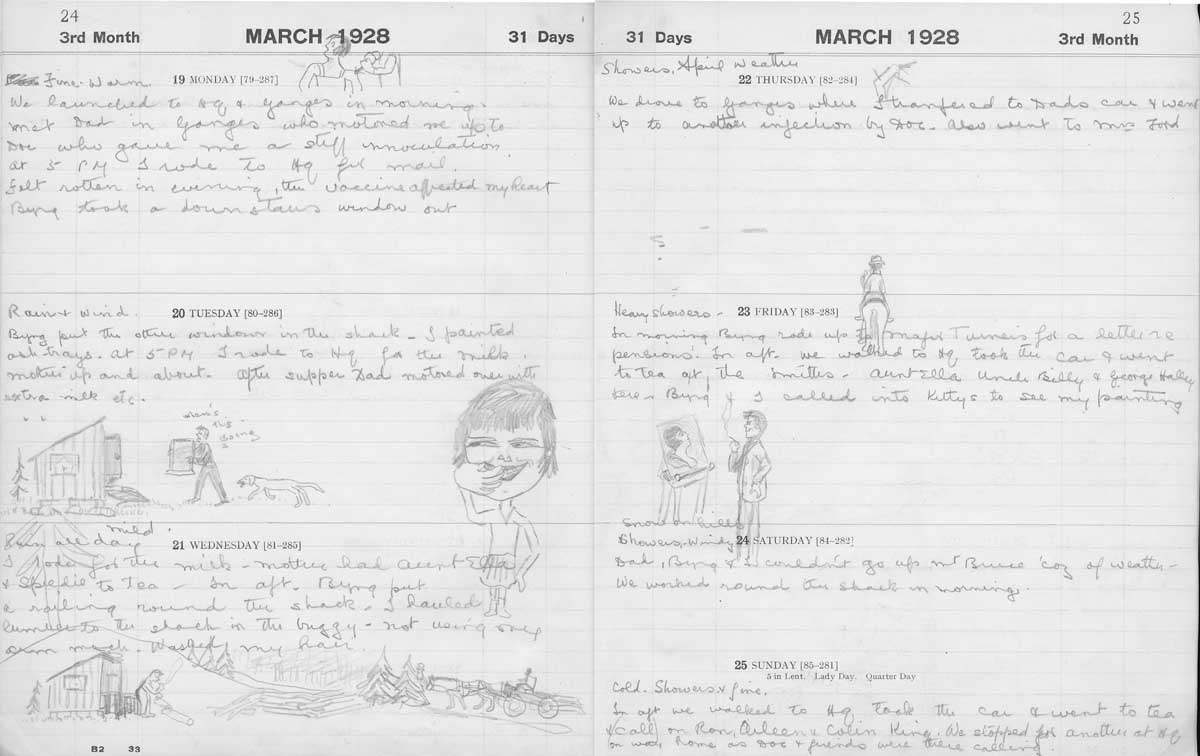 24
3rd Month MARCH 1928 31 Days
Fine. Warm. 19 MONDAY [79-287]
We launched to Hq & Ganges in morning.
Met Dad in Ganges who motored me up to
Doc who gave me a stiff innoculation.
At 5 PM I rode to Hq for mail.
Felt rotten in evening, the vaccine affected my heart
Byng took a downstairs window out
Rain & wind. 20 TUESDAY [80-286]
Byng put the other window in the shack - I painted
ash trays. At 5 PM I rode to Hq for the milk.
Mother up and about. After supper Dad motored over with
extra milk etc.
where's
this
going
?
mild.
Rain all day 21 WEDNESDAY [81-285]
I rode for the milk - mother had Aunt Ella
& to Tea - In aft. Byng put
a railing round the shack. I hauled
lumber to the shack in the buggy - not using one
arm much. Washed my hair.
B2 33
25
31 Days MARCH 1928 3rd Month
Showers, April weather
22 THURSDAY [82-284]
We drove to Ganges where I tranfered to Dads car & went
up to another injection by Doc. Also went to Mrs Ford
Heavy showers - 23 FRIDAY [83-283]
In morning Byng rode up to Major Turners for a letter re
pensions. In aft. we walked to Hq took the car & went
to tea at the Smiths - Aunt Ella Uncle Billy & George Haley
here - Byng & I called into Kittys to see my painting
Snow on hills
Showers - Windy 24 SATURDAY [84-282]
Dad, Byng & I couldn't go up Mt Bruce 'coz of weather -
We worked round the shack in morning.
25 SUNDAY [85-281]
5 in Lent. Lady Day. Quarter Day
Cold. Showers & fine.
In aft we walked to Hq took the car & went to tea
& call on Ron, Arleen & Colin King. We stopped for another at Hq
on way home as Doc & friends were there calling.